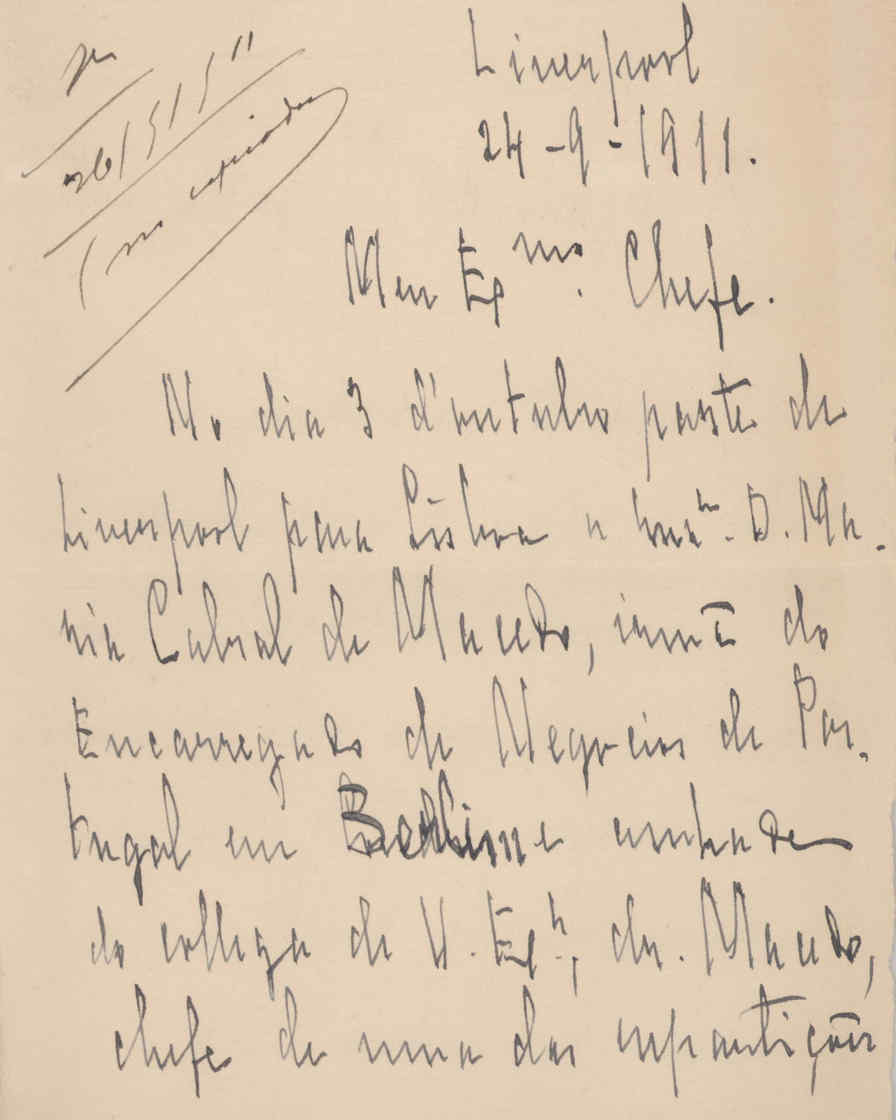 Liverpool
24-9-1911.
Meu Exmo. Chefe.
No dia 3 d'outubro parte de
Liverpool para Lisboa a D. Ma-
ria Cabral de Macedo, irmã do
Encarregado de Negocios de Por-
tugal em Berlim e cunhada
do collega de V. Exª, dr. Macedo,
chefe de uma das repartições